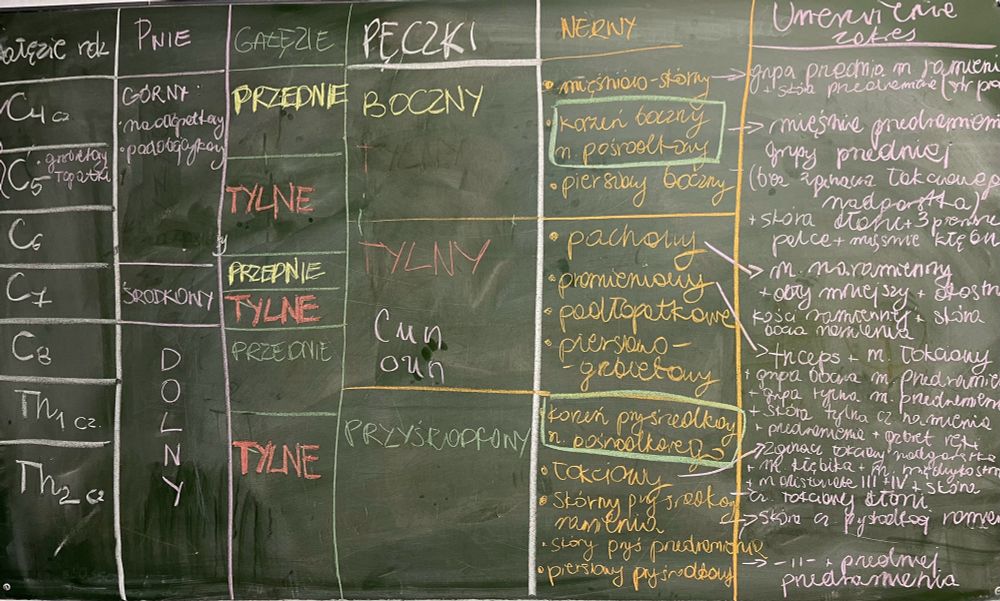 Gałęzie rdz.
C4 cz
C5
grzbietowy
łopatki
C6
C7
C8
Th1 cz.
Th2 cz
PNIE
GÓRNY
• nadłopatkowy
• podobojczykowy
ŚRODKOWY
DOLNY
GAŁĘZIE
PRZEDNIE
TYLNE
PRZEDNIE
TYLNE
PRZEDNIE
TYLNE
PĘCZKI
BOCZNY
TYLNY
Cun
oun
PRZYŚRODKOWY
NERWY
• mięśniowo-skórny
• korzeń boczny
n. pośrodkowy
• piersiowy boczny
• pachowy
• promieniowy
• podłopatkowe
• piersiowo-
-grzbietowy
korzeń przyśrodkowy
n. pośrodkowego
• łokciowy
• skórny przyśrodkow
ramienia
• skórny przyś przedramienia
• piersiowy przyśrodkowy
Unerwienie
zakres
grupa przednia m. ramienia
+ skóra przedramienia
mięśnie przedramienia
grupy przedniej
(bez zginacza łokciowego
nadgarstka)
+ skóra dłoni + 3 pierwsze
palce + mięśnie kłębu
m. naramienny
+ obły mniejszy +
kości ramiennej + skóra
ramienia
triceps + m. łokciowy
+ grupa boczna m. przedramienia
+ grupa tylna m. przedramienia
+ skóra tylna cz. ramienia
+ przedramienia + grzbiet ręki
zginacz łokciowy nadgarstka
+ m. kłębika + m. międzykostne
+ m glistowate III + IV + skóra
cz. łokciowej dłoni
skóra cz. przyśrodkowej ramienia
-||- + przedniej
przedramienia